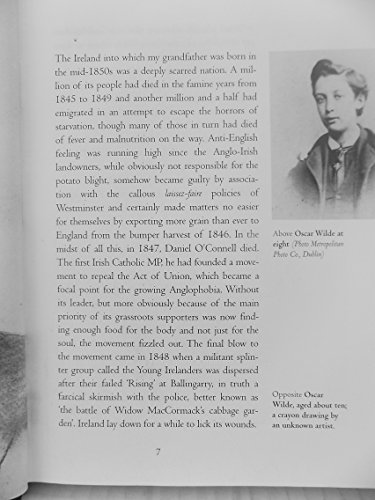 The Ireland into which my grandfather was born in
the mid-1850s was a deeply scarred nation. A mil-
lion of its people had died in the famine years from
1845 to 1849 and another million and a half had
emigrated in an attempt to escape the horrors of
starvation, though many of those in turn had died
of fever and malnutrition on the way. Anti-English
feeling was running high since the Anglo-Irish
landowners, while obviously not responsible for the
potato blight, somehow became guilty by associa-
tion with the callous laissez-faire policies of
Westminster and certainly made matters no easier
for themselves by exporting more grain than ever to
England from the bumper harvest of 1846. In the
midst of all this, in 1847, Daniel O'Connell died.
The first Irish Catholic MP, he had founded a move-
ment to repeal the Act of Union, which became a
focal point for the growing Anglophobia. Without
its leader, but more obviously because of the main
priority of its grassroots supporters was now find-
ing enough food for the body and not just for the
soul, the movement fizzled out. The final blow to
the movement came in 1848 when a militant splin-
ter group called the Young Irelanders was dispersed
after their failed 'Rising' at Ballingarry, in truth a
farcical skirmish with the police, better known as
'the battle of Widow MacCormack's cabbage gar-
den'. Ireland lay down for a while to lick its wounds.
7
Above Oscar Wilde at
eight (Photo Metropolitan
Photo Co., Dublin)
Opposite Oscar
Wilde, aged about ten;
a crayon drawing by
an unknown artist.